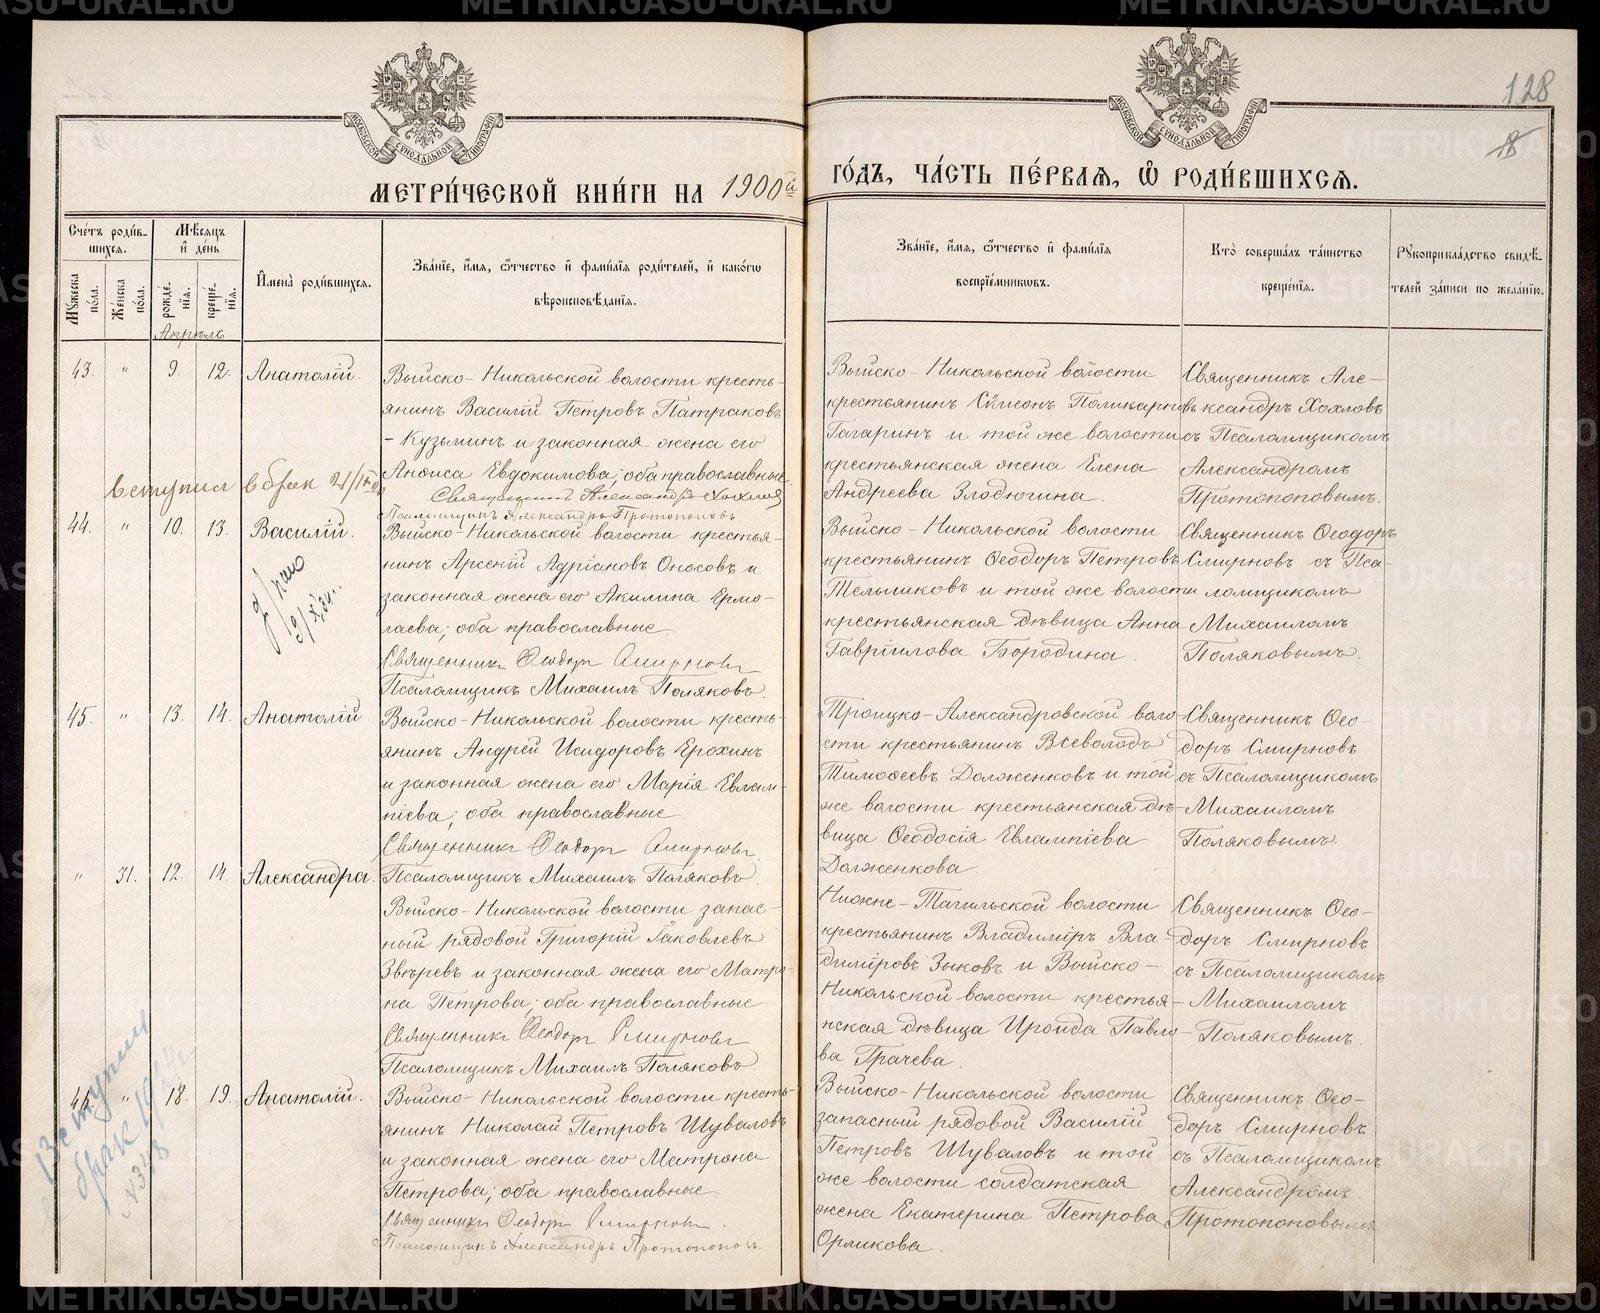 128
18
МОСКОВСКОЙ СѴНОДАЛЬНОЙ ТИПОГРАФІИ
МОСКОВСКОЙ СѴНОДАЛЬНОЙ ТИПОГРАФІИ
МЕТРИ́ЧЕСКОЙ КНИ́ГИ НА 1900й ГО́ДЪ, ЧА́СТЬ ПЕ́РВАѦ, Ѡ҆ РОДИ́ВШИХСѦ.
Сче́тъ роди́в-
шихсѧ.
Мꙋжеска по́ла.
Же́нска по́ла.
Мѣ́сѧцъ
и҆ де́нь
рожде́нїѧ.
креще́нїѧ.
И҆мена̀ роди́вшихсѧ.
Зва́нїе, и҆́мѧ, ѻ҆́тчество и҆ фами́лїѧ роди́телей, и҆ како́гѡ
вѣроисповѣ́данїѧ.
Зва́нїе, и҆́мѧ, ѻ҆́тчество и҆ фами́лїѧ
воспрїе́мникѡвъ.
Кто̀ соверша́лъ та́инство
креще́нїѧ.
Рꙋкоприкла́дство свидѣ́-
телей за́писи по жела́нїю.
Апрѣль
43. " 9. 12. Анатолій.
Выйско-Никольской волости кресть-
янинъ Василій Петровъ Патраковъ
-Кузьминъ и законная жена его
Анѳиса Евдокимова; оба православные.
Священникъ Александръ Хохловъ
Псаломщикъ Александръ Протопоповъ
Выйско-Никольской волости
крестьянинъ Сѵмеонъ Поликарповъ
Гагаринъ и той же волости
крестьянская жена Елена
Андреева Злодюгина.
Священникъ Але-
ксандръ Хохловъ
съ Псаломщикомъ
Александромъ
Протопоповымъ.
вступил в брак
44. " 10. 13. Василій.
Выйско-Никольской волости крестья-
нинъ Арсеній Адріановъ Оносовъ и
законная жена его Акилина Ермо-
лаева; оба православные.
Священникъ Ѳеодоръ Смирновъ
Псаломщикъ Михаилъ Поляковъ.
Выйско-Никольской волости
крестьянинъ Ѳеодоръ Петровъ
Тельниковъ и той же волости
крестьянская дѣвица Анна
Гавріилова Бородина.
Священникъ Ѳеодоръ
Смирновъ съ Пса-
ломщикомъ
Михаиломъ
Поляковымъ.
45. " 13. 14. Анатолій.
Выйско-Никольской волости кресть-
янинъ Андрей Исидоровъ Ерохинъ
и законная жена его Марія Евлам-
піева; оба православные.
Священникъ Ѳеодоръ Смирновъ.
Псаломщикъ Михаилъ Поляковъ.
Троицко-Александровской воло-
сти крестьянинъ Всеволодъ
Тимоѳеевъ Долженковъ и той
же волости крестьянская дѣ-
вица Ѳеодосія Евлампіева
Долженкова.
Священникъ Ѳео-
доръ Смирновъ
съ Псаломщикомъ
Михаиломъ
Поляковымъ.
" 31. 12. 14. Александра.
Выйско-Никольской волости запас-
ный рядовой Григорій Іаковлевъ
Звѣревъ и законная жена его Матро-
на Петрова; оба православные
Священникъ Ѳеодоръ Смирновъ
Псаломщикъ Михаилъ Поляковъ.
Нижне-Тагильской волости
крестьянинъ Владиміръ Вла-
диміровъ Зыковъ и Выйско-
Никольской волости крестья-
нская дѣвица Ироида Павло-
ва Грачева.
Священникъ Ѳео-
доръ Смирновъ
съ Псаломщикомъ
Михаиломъ
Поляковымъ.
46. " 18. 19. Анатолій.
Выйско-Никольской волости кресть-
янинъ Николай Петровъ Шуваловъ
и законная жена его Матрона
Петрова; оба православные.
Священникъ Ѳеодоръ Смирновъ.
Псаломщикъ Александръ Протопоповъ.
Выйско-Никольской волости
запасный рядовой Василій
Петровъ Шуваловъ и той
же волости солдатская
жена Екатерина Петрова
Орликова.
Священникъ Ѳео-
доръ Смирновъ
съ Псаломщикомъ
Александромъ
Протопоповымъ
Вступил
брак
N 348
METRIKI.GASO-URAL.RU